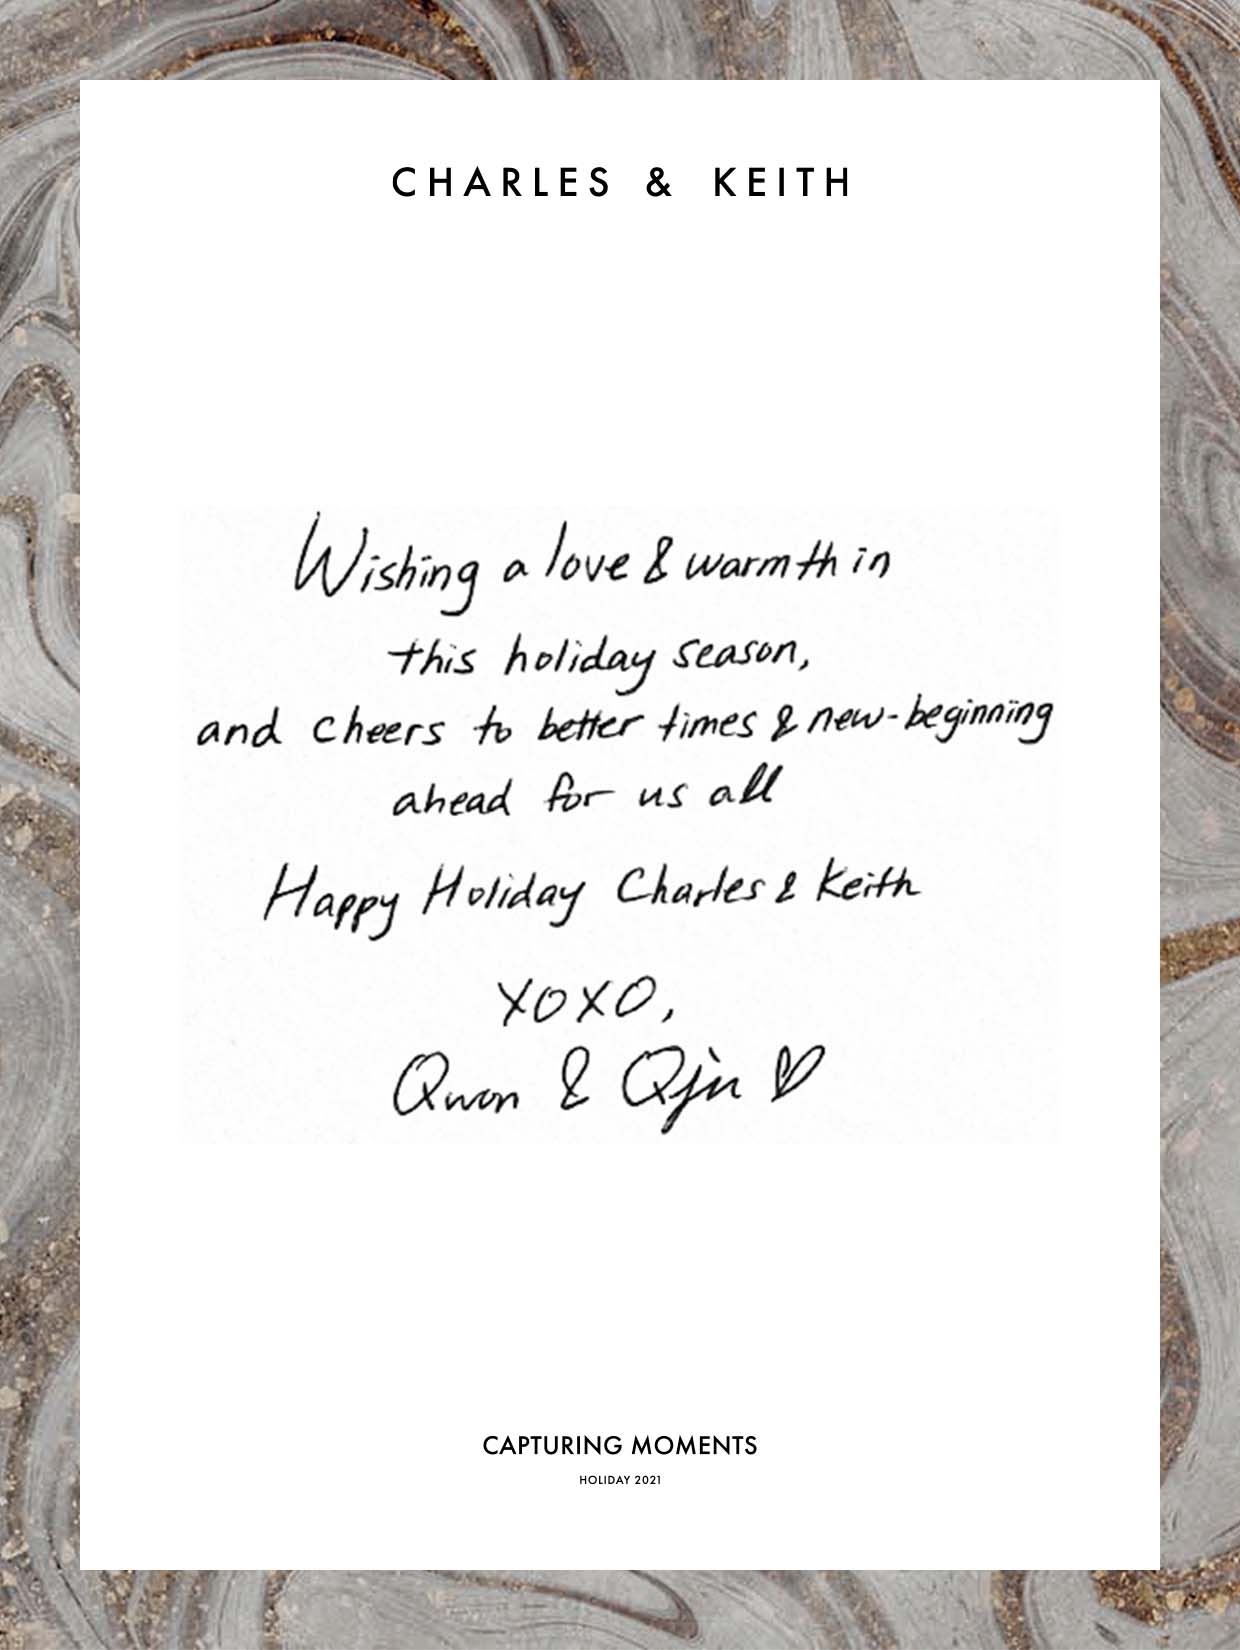 CHARLES & KEITH
Wishing a love & warmth in
this holiday season,
and cheers to better times & new-beginning
ahead for us all
Happy Holiday Charles & Keith
XOXO,
Qwon & Qjin ♡
CAPTURING MOMENTS
HOLIDAY 2021